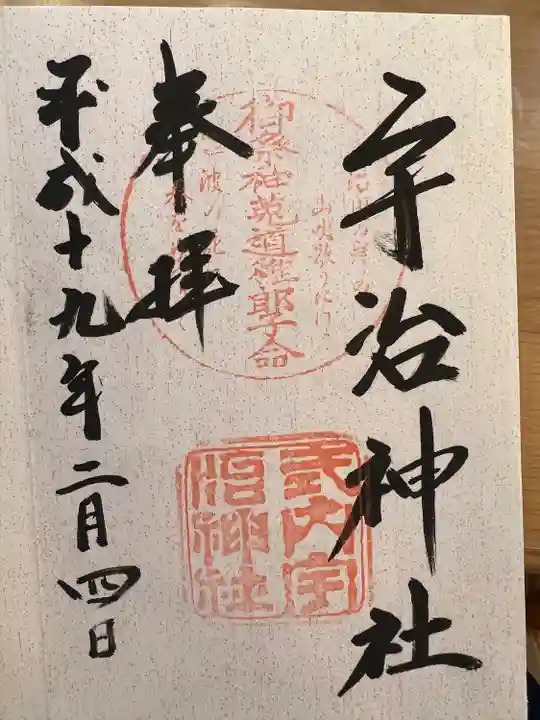 宇治神社
御祭神菟道稚郎子命
奉拝
式内宇
治神社
平成十九年二月四日